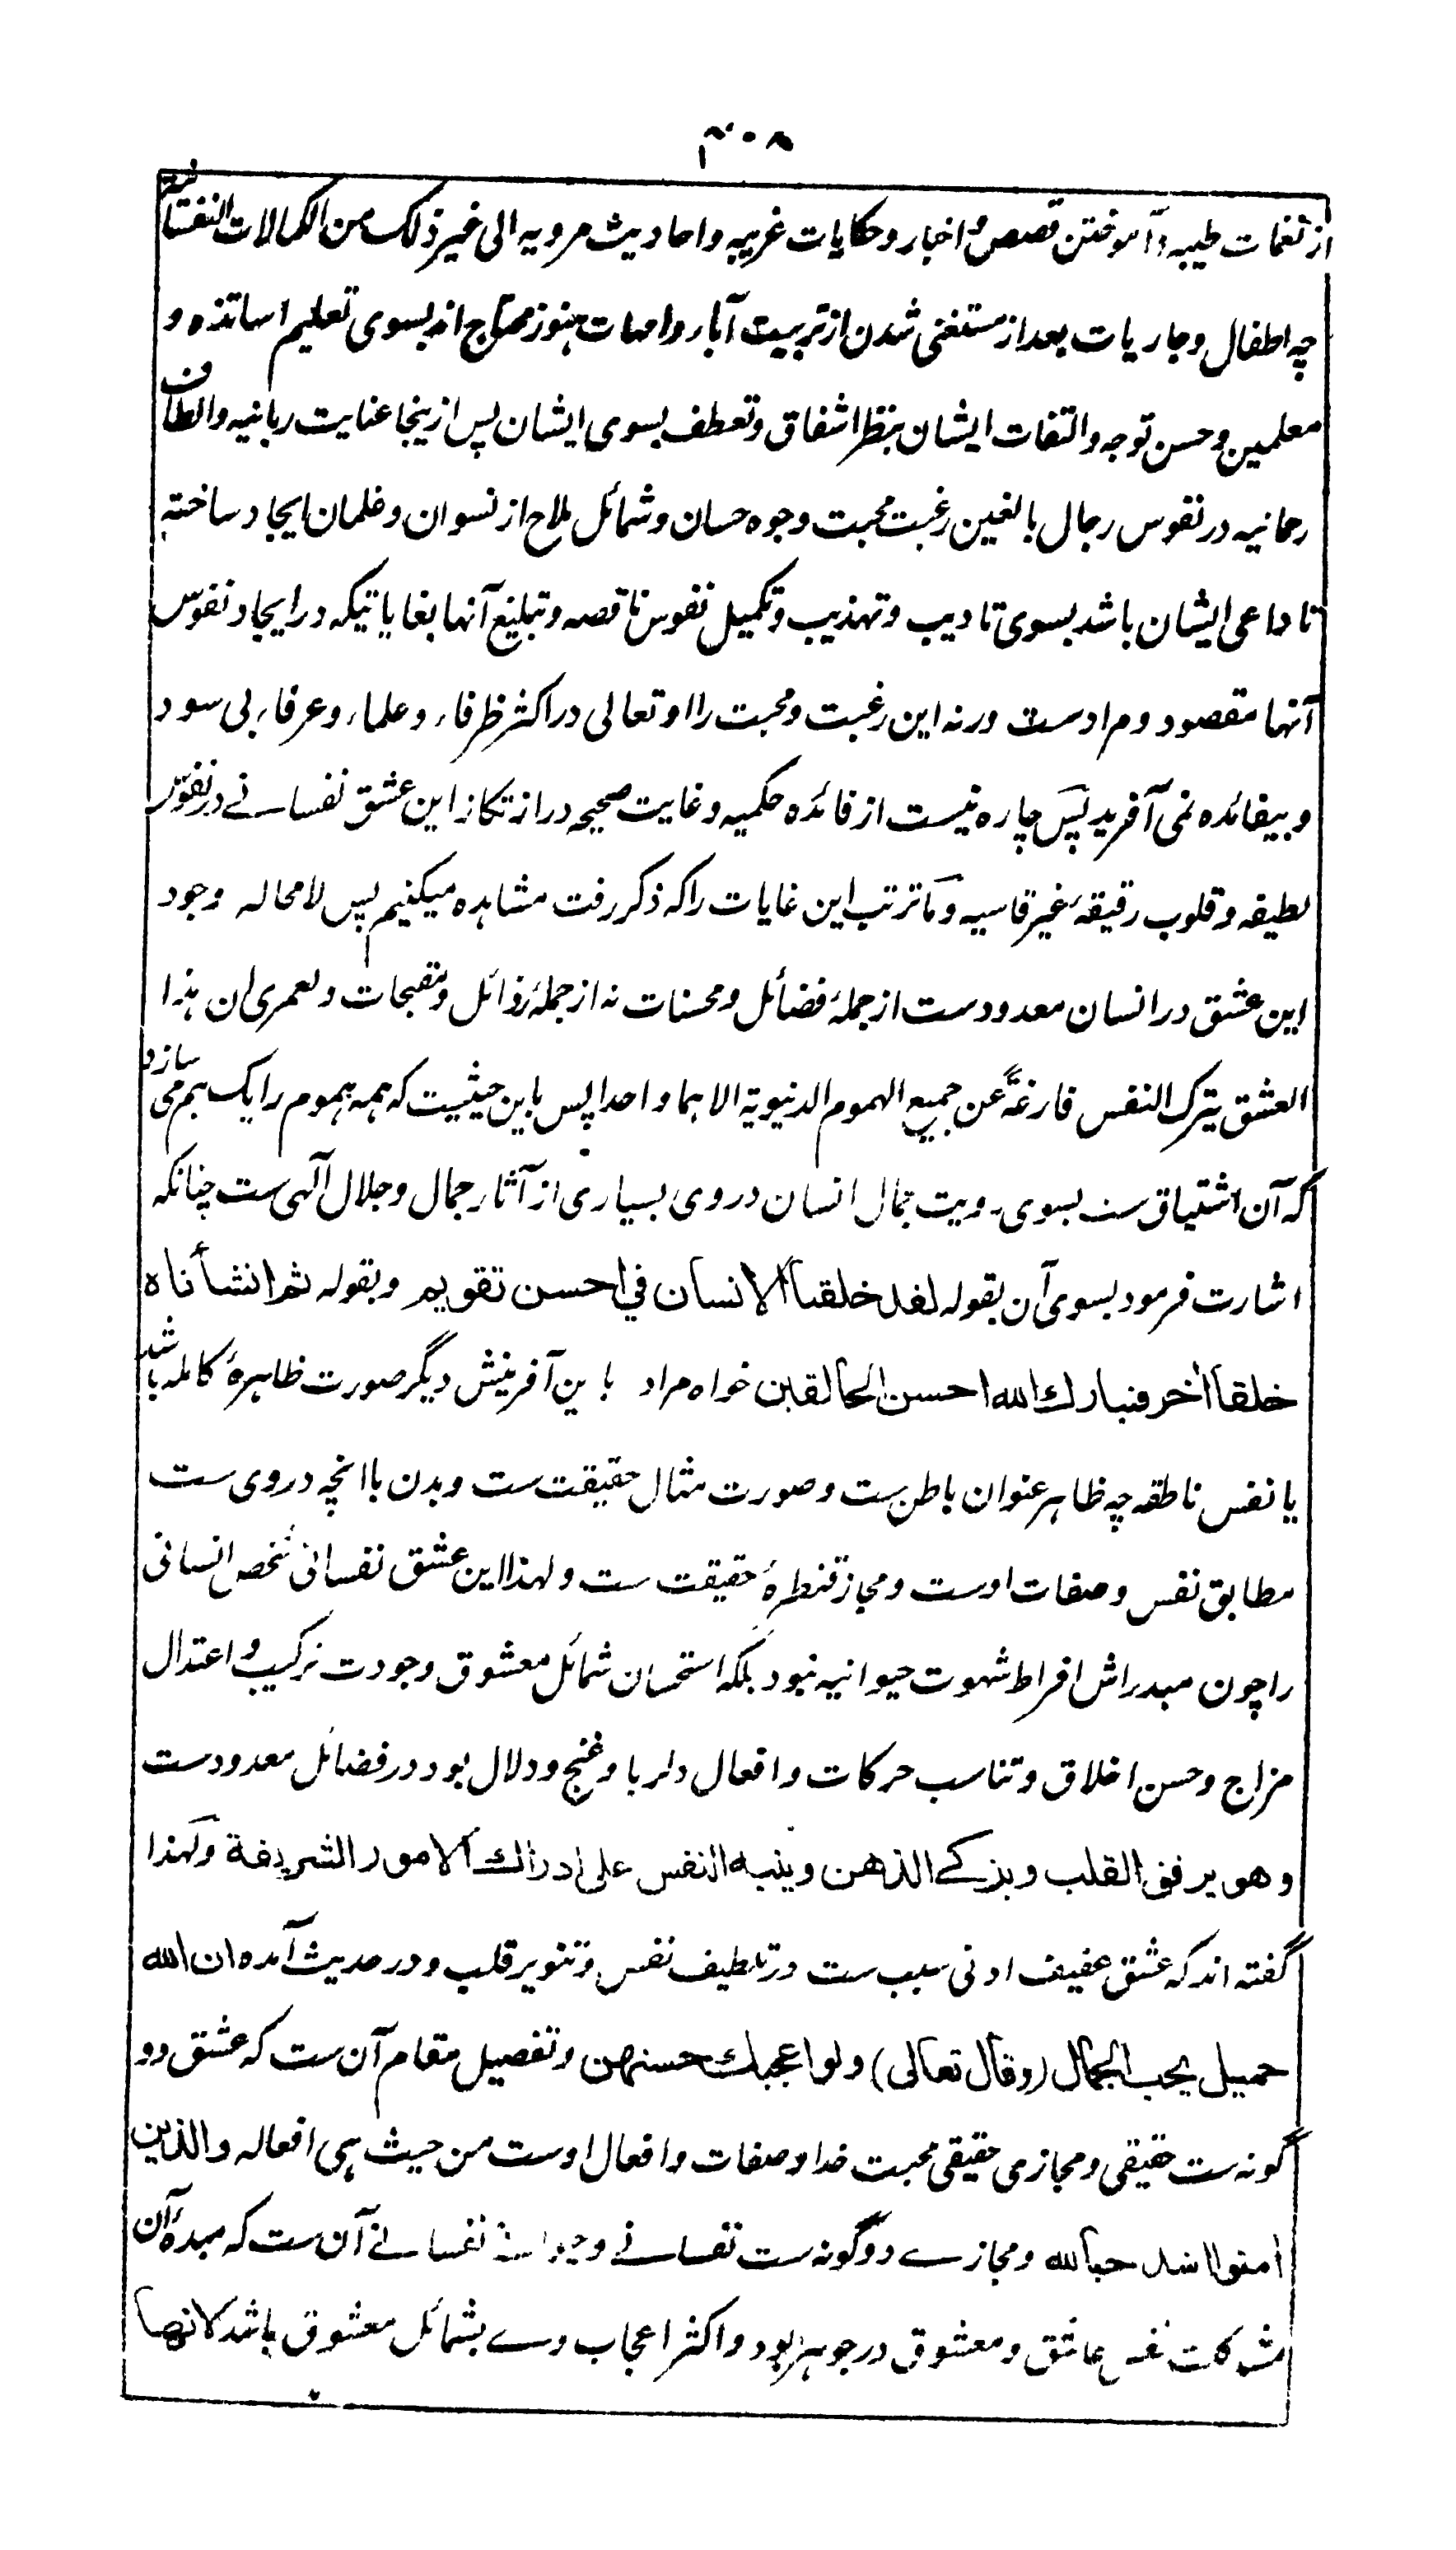 ۳۰۸
از نغمات طیبه و آموختن قصص و اخبار و حکایات غریبه و احادیث مرویه الی غیر ذلک من الکمالات النفسانیه
چه اطفال و جاریات بعد از مستغنی شدن از تربیت آباء و امهات هنوز محتاج اند بسوی تعلیم اساتذه و
معلمین و حسن توجه و التفات ایشان بنظر اشفاق و تعطف بسوی ایشان پس ازینجا عنایت ربانیه و الطاف
رحمانیه در نفوس رجال بالغین رغبت محبت وجوه حسان و شمائل ملاح از نسوان و غلمان ایجاد ساخته
تا داعی ایشان باشد بسوی تادیب و تهذیب و تکمیل نفوس ناقصه و تبلیغ آنها بغایاتیکه در ایجاد نفوس
آنها مقصود و مرادست ورنه این رغبت و محبت را او تعالی در اکثر ظرفاء و علماء و عرفاء بی سود
و بیفائده نمی آفرید پس چاره نیست از فائده حکمیه و غایت صحیحه در ارتکاز این عشق نفسانے در نفوس
لطیفه و قلوب رقیقهٔ غیر قاسیه و ما ترتب این غایات را که ذکر رفت مشاهده میکنیم پس لا محاله وجود
این عشق در انسان معدودست از جملهٔ فضائل و محسنات نه از جملهٔ رذائل و مقبحات و لعمری ان هذا
العشق یترک النفس فارغةً عن جمیع الهموم الدنیویة الا هما واحدا پس باین حیثیت که همه هموم را یک هم می سازد
که آن اشتیاق ست بسوی رویت جمال انسان در وی بسیاری از آثار جمال و جلال آلهی ست چنانکه
اشارت فرمود بسوی آن بقوله لقد خلقنا الانسان في احسن تقويم و بقوله ثم انشأناه
خلقا اٰخر فتبارك الله احسن الخالقين خواه مراد باین آفرینش دیگر صورت ظاهرهٔ کامله باشد
یا نفس ناطقه چه ظاهر عنوان باطن ست و صورت مثال حقیقت ست و بدن باانچه در وی ست
مطابق نفس و صفات اوست و مجاز قنطرهٔ حقیقت ست و لهذا این عشق نفسانی شخص انسانی
را چون مبدراش افراط شهوت حیوانیه نبود بلکه استحسان شمائل معشوق وجودت ترکیب و اعتدال
مزاج و حسن اخلاق و تناسب حرکات و افعال دلربا و غنج و دلال بود در فضائل معدودست
و هو يرقق القلب و يذكے الذهن و ينبه النفس على ادراك الامور الشريفة ولهذا
گفته اند که عشق عفیف اوفی سبب ست در تلطیف نفس و تنویر قلب و در حدیث آمده ان الله
جميل يحب الجمال (وقال تعالى) ولو اعجبك حسنهن و تفصیل مقام آن ست که عشق دو
گونه ست حقیقی و مجازی حقیقی محبت خدا و صفات و افعال اوست من حیث هی افعاله والذين
اٰمنوا اشد حبا لله و مجازے دو گونه ست نفسانے و حیوانے نفسانے آن ست که مبدءٔ آن
مشاکلت نفس عاشق و معشوق در جوهر بود و اکثر اعجاب وے بشمائل معشوق باشد لانها